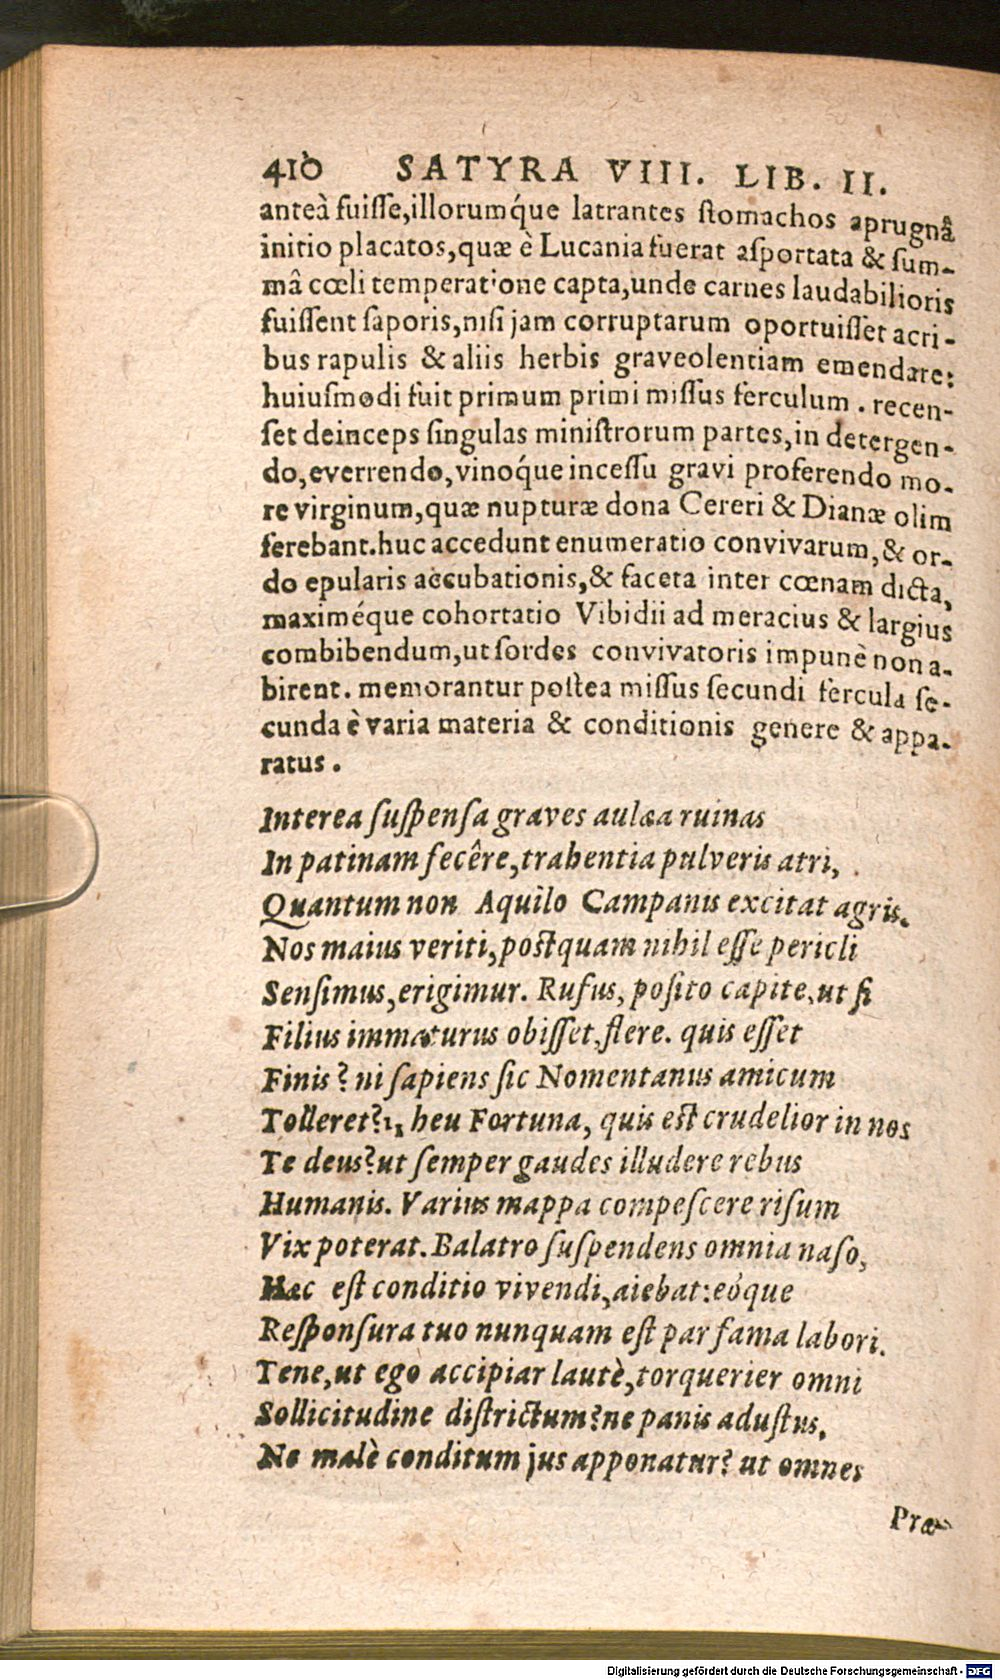 410 SATYRA VIII. LIB. II.
anteà fuiſſe,illorumq́ue latrantes ſtomachos aprugnâ
initio placatos,quæ è Lucania fuerat aſportata & ſum-
mâ cœli temperatione capta,unde carnes laudabilioris
fuiſſent ſaporis,niſi jam corruptarum oportuiſſet acri-
bus rapulis & aliis herbis graveolentiam emendare:
huiuſmodi fuit primum primi miſſus ferculum . recen-
ſet deinceps ſingulas miniſtrorum partes,in detergen-
do,everrendo,vinoq́ue inceſſu gravi proferendo mo-
re virginum,quæ nupturæ dona Cereri & Dianæ olim
ferebant.huc accedunt enumeratio convivarum,& or-
do epularis accubationis,& faceta inter cœnam dicta,
maximéque cohortatio Vibidii ad meracius & largius
combibendum,ut ſordes convivatoris impunè non a-
birent. memorantur poſtea miſſus ſecundi fercula ſe-
cunda è varia materia & conditionis genere & appa-
ratus .
Interea ſuſpenſa graves aulæa ruinas
In patinam fecêre,trahentia pulveris atri,
Quantum non Aquilo Campanis excitat agris.
Nos maius veriti,poſtquam nihil eſſe pericli
Senſimus,erigimur. Rufus, poſito capite,ut ſi
Filius immaturus obiſſet,flere. quis eſſet
Finis? ni ſapiens ſic Nomentanus amicum
Tolleret? heu Fortuna, quis eſt crudelior in nos
Te deus?ut ſemper gaudes illudere rebus
Humanis. Varius mappa compeſcere riſum
Vix poterat.Balatro ſuſpendens omnia naſo,
Hæc eſt conditio vivendi,aiebat:eóque
Reſponſura tuo nunquam eſt par fama labori.
Tene,ut ego accipiar lautè,torquerier omni
Sollicitudine diſtrictum?ne panis aduſtus,
Ne malè conditum jus apponatur? ut omnes
Præ-
Digitalisierung gefördert durch die Deutsche Forschungsgemeinschaft - DFG